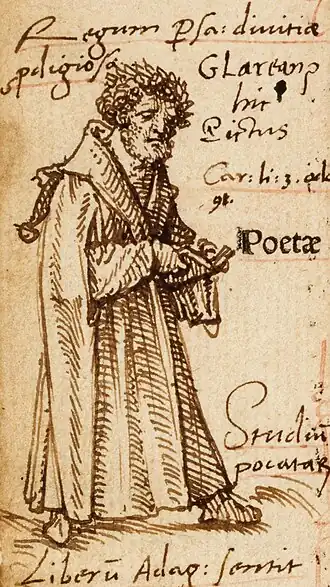 Regum Psa: divitiæ
pdigiosa
GLarean9
hic
Pictus
Car: li: 3. ode
9t.
Poetæ
Studiū
poeatar
Liberū Adag: sentit